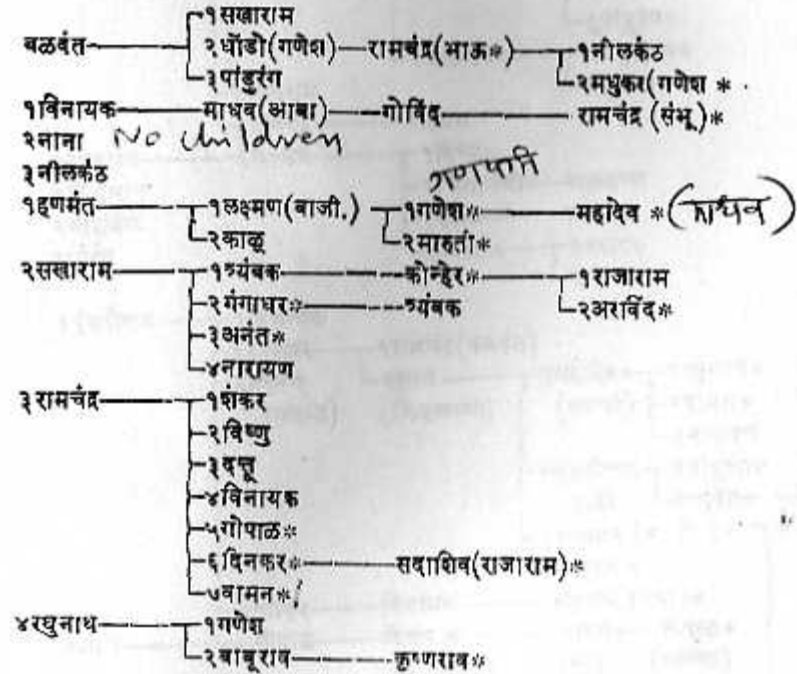 १सखाराम
बळवंत २धोंडो(गणेश) रामचंद्र(भाऊ*) १नीलकंठ
३पांडुरंग २मधुकर(गणेश *
१विनायक माधव(आबा) गोविंद रामचंद्र (संभू)*
२नाना No children
३नीलकंठ
गणपती
१हणमंत १लक्ष्मण(बाजी.) १गणेश* महादेव * (माधव)
२काळू २मारुती*
२सखाराम १त्र्यंबक कोन्हेर* १राजाराम
२गंगाधर* त्र्यंबक २अरविंद*
३अनंत*
४नारायण
३रामचंद्र १शंकर
२विष्णु
३दत्तू
४विनायक
५गोपाळ*
६दिनकर* सदाशिव(राजाराम)*
७वामन*
४रघुनाथ १गणेश
२बाबूराव कृष्णराव*